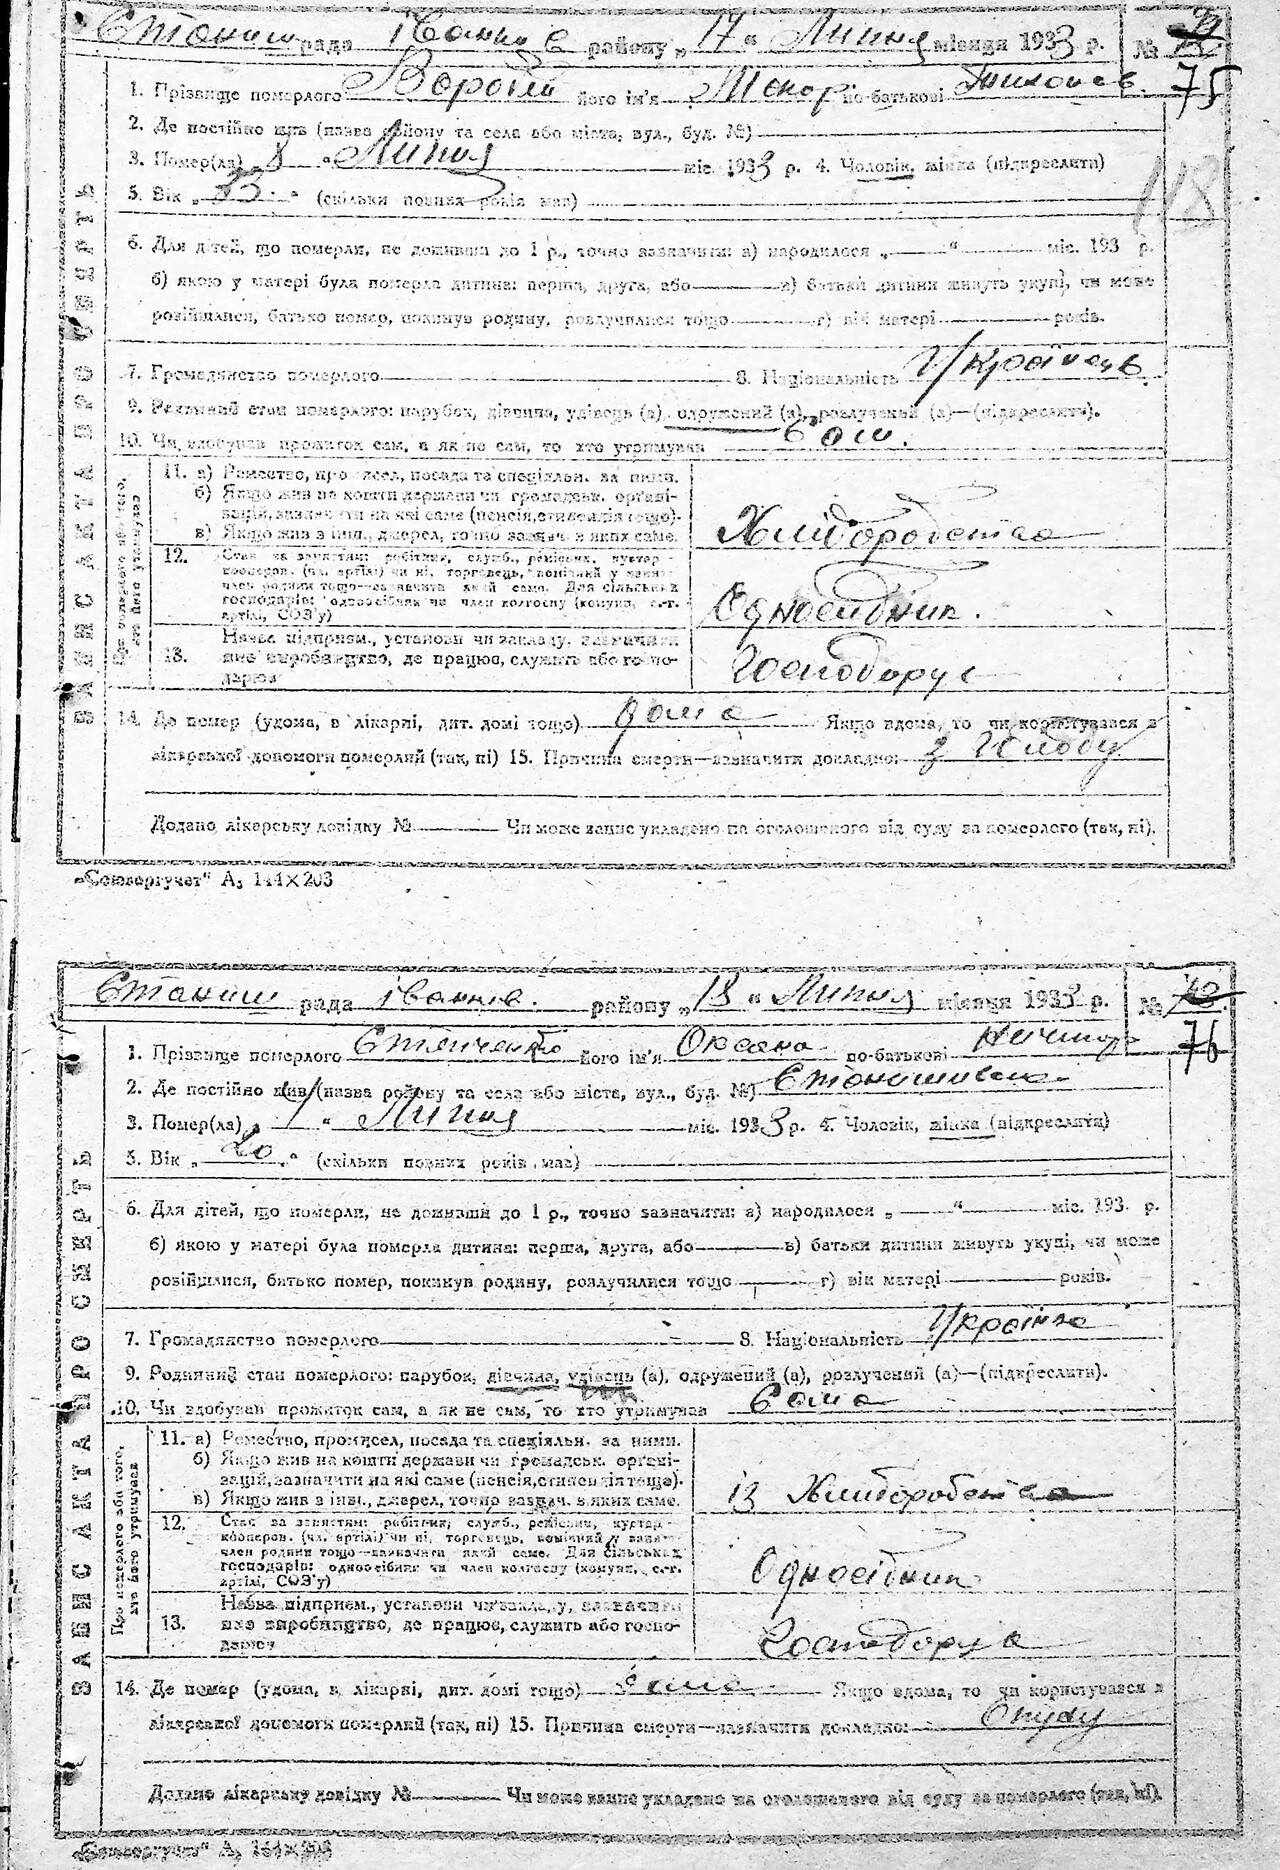 Станиш рада Іванків району „17“ Липня місяця 1933 р. №
75
1. Прізвище померлого Воробій його ім'я Макар по-батькові
2. Де постійно жив (назва району та села або міста, вул., буд. №)
3. Помер(ла) „8“ Липня міс. 1933 р. 4. Чоловік, жінка (підкреслити)
5. Вік „ “ (скільки повних років мав)
118
6. Для дітей, що померли, не доживши до 1 р., точно зазначити: а) народилося „ “ міс. 193 р.
б) якою у матері була померла дитина: перша, друга, або в) батьки дитини живуть укупі, чи може
розійшлися, батько помер, покинув родину, розлучилися тощо г) вік матері років.
7. Громадянство померлого 8. Національність Українець
9. Родинний стан померлого: парубок, дівчина, удівець (а), одружений (а), розлучений (а)—(підкреслити).
10. Чи здобував прожиток сам, а як не сам, то хто утримував Сам.
11. а) Ремество, промисел, посада та спеціяльн. за ними.
б) Якщо жив на кошти держави чи громадськ. органі-
зацій, зазначити на які саме (пенсія, стипендія тощо).
в) Якщо жив з інш. джерел, точно зазнач. з яких саме. Хліборобство
12. Стан за заняттям: робітник, служб., ремісник, кустар
кооперов. (чл. артілі) чи ні, торговець, помічний у занят.
член родини тощо—зазначити який саме. Для сільських
господарів: одноосібник чи член колгоспу (комуни, с.-г.
артілі, СОЗ'у) Одноосібник.
13. Назва підприєм., установи чи закладу, зазначити
яке виробництво, де працює, служить або госпо-
дарює Господарує
14. Де помер (удома, в лікарні, дит. домі тощо) дома Якщо вдома, то чи користувався з
лікарської допомоги померлий (так, ні) 15. Причина смерти—зазначити докладно: з Голоду
Додано лікарську довідку № Чи може запис укладено на оголошеного від суду за померлого (так, ні).
ЗАПИС АКТА ПРО СМЕРТЬ
Про померлого або того,
хто його утримував
„Союзоргучет“ А, 144×203
Станиш рада Іванків. району „18“ Липня місяця 1933 р. №
76
1. Прізвище померлого його ім'я Оксана по-батькові
2. Де постійно жив (назва району та села або міста, вул., буд. №) Станишівка
3. Помер(ла) „ “ Липня міс. 1933 р. 4. Чоловік, жінка (підкреслити)
5. Вік „20“ (скільки повних років мав)
6. Для дітей, що померли, не доживши до 1 р., точно зазначити: а) народилося „ “ міс. 193 р.
б) якою у матері була померла дитина: перша, друга, або в) батьки дитини живуть укупі, чи може
розійшлися, батько помер, покинув родину, розлучилися тощо г) вік матері років.
7. Громадянство померлого 8. Національність Українка
9. Родинний стан померлого: парубок, дівчина, удівець (а), одружений (а), розлучений (а)—(підкреслити).
10. Чи здобував прожиток сам, а як не сам, то хто утримував Сама
11. а) Ремество, промисел, посада та спеціяльн. за ними.
б) Якщо жив на кошти держави чи громадськ. органі-
зацій, зазначити на які саме (пенсія, стипендія тощо).
в) Якщо жив з інш. джерел, точно зазнач. з яких саме. із Хліборобства
12. Стан за заняттям: робітник, служб., ремісник, кустар
кооперов. (чл. артілі) чи ні, торговець, помічний у занят.
член родини тощо—зазначити який саме. Для сільських
господарів: одноосібник чи член колгоспу (комуни, с.-г.
артілі, СОЗ'у) Одноосібник
13. Назва підприєм., установи чи закладу, зазначити
яке виробництво, де працює, служить або госпо-
дарює Господарка
14. Де помер (удома, в лікарні, дит. домі тощо) дома Якщо вдома, то чи користувався з
лікарської допомоги померлий (так, ні) 15. Причина смерти—зазначити докладно:
Додано лікарську довідку № Чи може запис укладено на оголошеного від суду за померлого (так, ні).
ЗАПИС АКТА ПРО СМЕРТЬ
Про померлого або того,
хто його утримував
„Союзоргучет“ А, 144×203